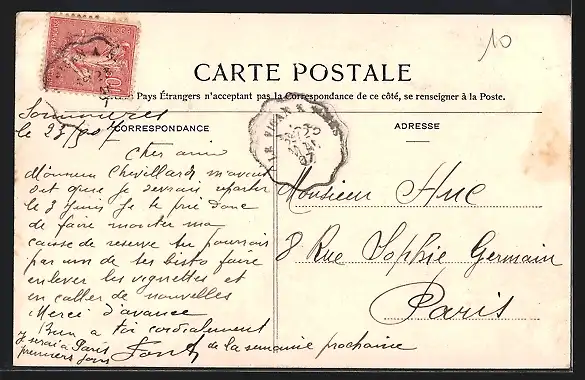 10
CARTE POSTALE
Pays Étrangers n'acceptant pas la Correspondance de ce côté, se renseigner à la Poste.
Sommières
le 23/5 07
CORRESPONDANCE
ADRESSE
LE VIGAN A NIMES
07
Cher ami
Monsieur Chevillard m'avait
dit que je devrais repartir
le 3 Juin Je te prie donc
de faire monter ma
caisse de reserve tu pourrais
par un de tes bisto faire
enlever les vignettes et
en coller de nouvelles
Merci d'avance
Bien a toi cordialement
je serai à Paris
premiers jours de la semaine prochaine
Monsieur Huc
8 Rue Sophie Germain
Paris